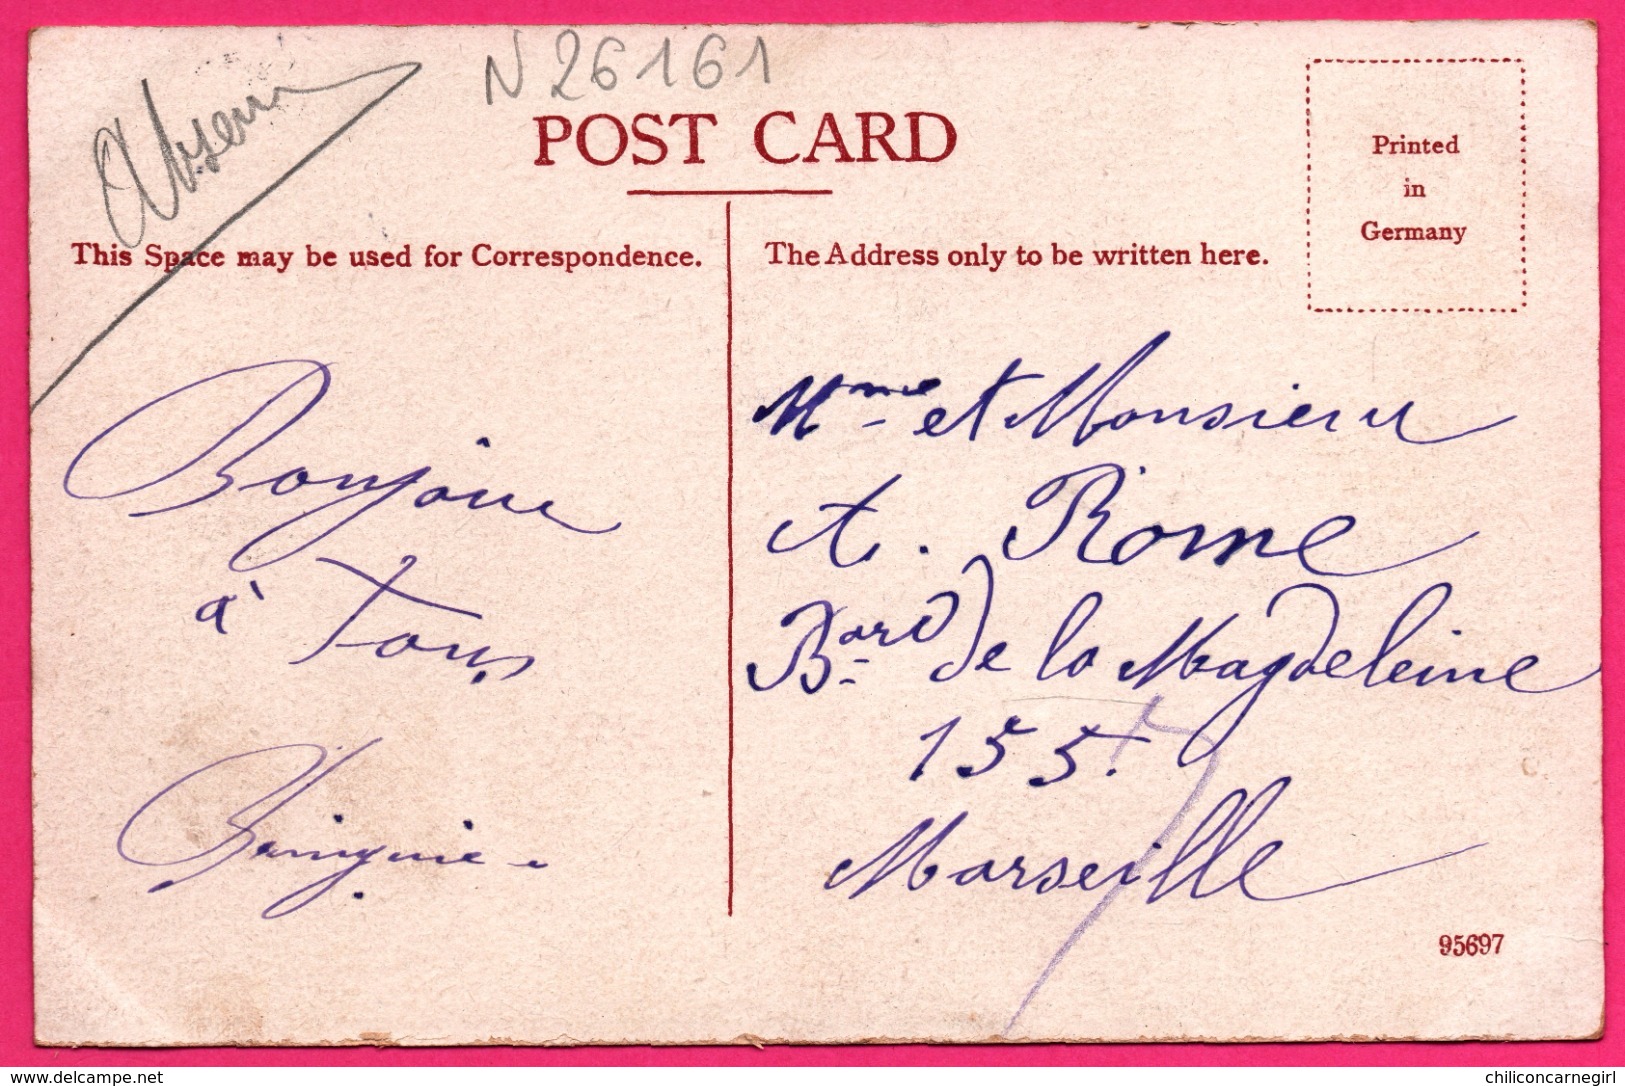 Absent
N 26161
POST CARD
Printed
in
Germany
This Space may be used for Correspondence.
The Address only to be written here.
Bonjour
à Tous
Mme et Monsieur
A. Rome
Bard de la Magdeleine
155.
Marseille
95697
delcampe.net
chiliconcarnegirl